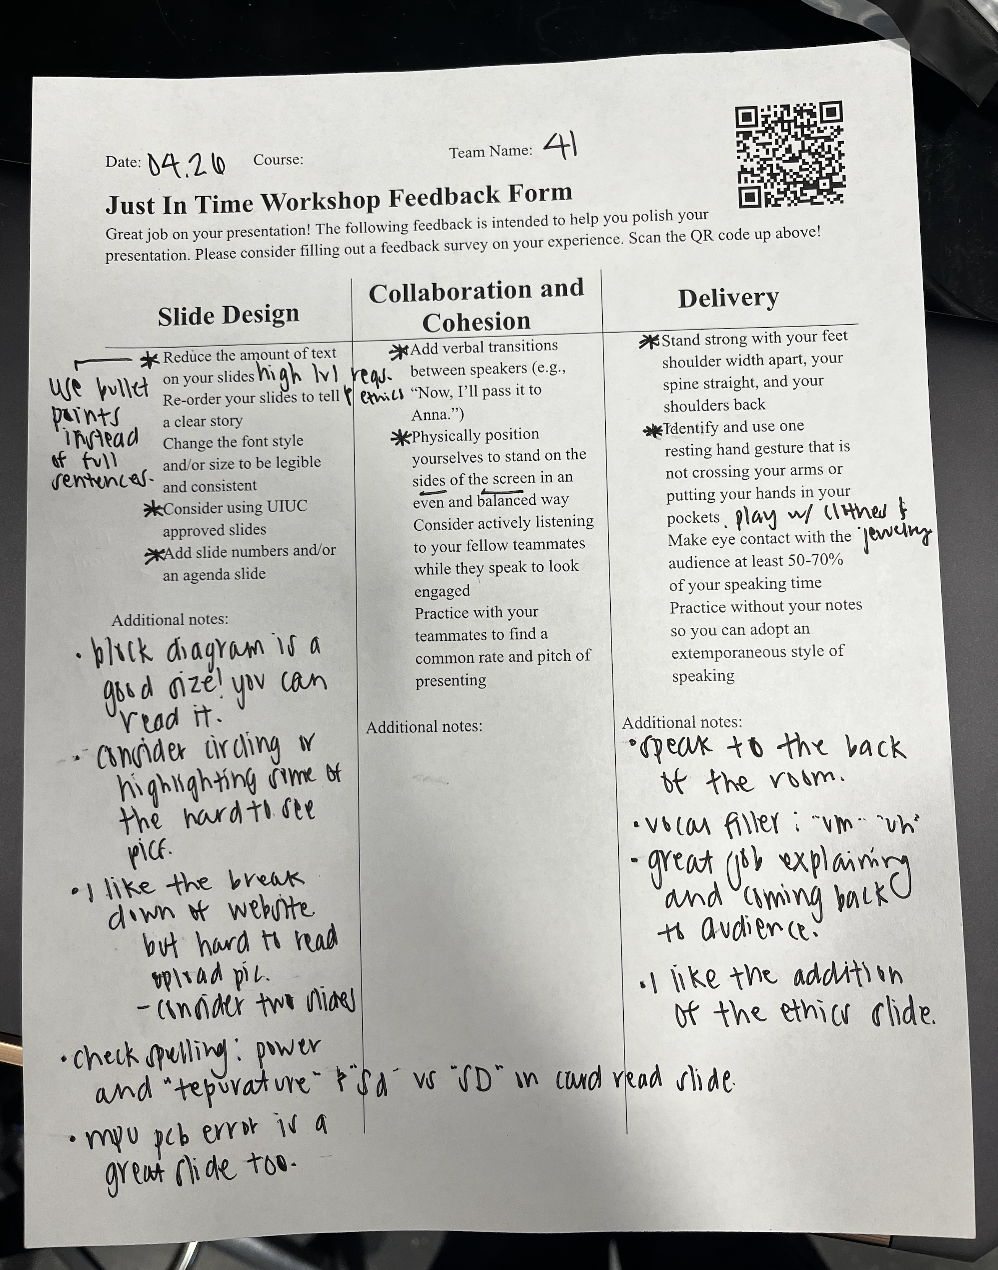 Date: 04.26 Course: Team Name: 41
Just In Time Workshop Feedback Form
Great job on your presentation! The following feedback is intended to help you polish your
presentation. Please consider filling out a feedback survey on your experience. Scan the QR code up above!
Slide Design
* Reduce the amount of text
on your slides high lvl reqs.
& ethics
Use bullet
points
instead
of full
sentences.
Re-order your slides to tell
a clear story
Change the font style
and/or size to be legible
and consistent
* Consider using UIUC
approved slides
* Add slide numbers and/or
an agenda slide
Additional notes:
• block diagram is a
good size! you can
read it.
• consider circling or
highlighting some of
the hard to see
pics.
• I like the break
down of website
but hard to read
upload pic.
- consider two slides
• check spelling: power
and "tepurature" & "Sd" vs "SD" in card read slide.
• mpu pcb error is a
great slide too.
Collaboration and
Cohesion
* Add verbal transitions
between speakers (e.g.,
“Now, I’ll pass it to
Anna.”)
* Physically position
yourselves to stand on the
sides of the screen in an
even and balanced way
Consider actively listening
to your fellow teammates
while they speak to look
engaged
Practice with your
teammates to find a
common rate and pitch of
presenting
Additional notes:
Delivery
* Stand strong with your feet
shoulder width apart, your
spine straight, and your
shoulders back
* Identify and use one
resting hand gesture that is
not crossing your arms or
putting your hands in your
pockets, play w/ clothes &
jewelry
Make eye contact with the
audience at least 50-70%
of your speaking time
Practice without your notes
so you can adopt an
extemporaneous style of
speaking
Additional notes:
• speak to the back
of the room.
• vocal filler: "um" "uh"
• great job explaining
and coming back
to audience.
• I like the addition
of the ethics slide.